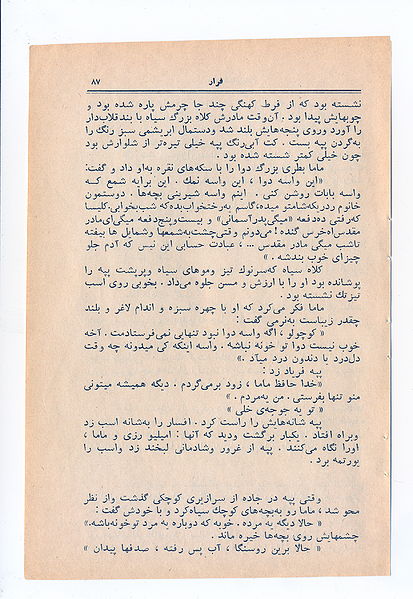 فرار
۸۷
نشسته بود که از فرط کهنگی چند جا چرمش پاره شده بود و
چوبهایش پیدا بود . آن‌وقت مادرش کلاه بزرگ سیاه با بند قلاب‌دار
را آورد و روی پنجه‌هایش بلند شد و دستمال ابریشمی سبز رنگ را
به‌گردن پپه بست . کت آبی‌رنگ پپه خیلی تیره‌تر از شلوارش بود
چون خیلی کمتر شسته شده بود .
ماما بطری بزرگ دوا را با سکه‌های نقره به‌او داد و گفت:
«این واسه دوا ، این واسه نمك . این برایه شمع کـه
واسه بابات روشن کنی . اینم واسه شیرینی بچه‌ها . دوستمون
خانوم رودریگه شامتو میده،گاسم یه‌رختخواب‌بده‌که شب‌بخوابی.کلیسا
که‌رفتی ده‌دفعه «میگی‌پدرآسمانی» و بیست‌وپنج‌دفعه میگی‌ای‌مادر
مقدس‌اه‌خرس گنده! می‌دونم وقتی‌چشت‌به‌شمعها وشمایل ها بیفته
تاشب میگی مادر مقدس ... ، عبادت حسابی این نیس که آدم جلو
چیزای خوب بندشه . »
کلاه سیاه که‌سرنوك تیز وموهای سیاه وپرپشت پپه را
پوشانده بود او را با ارزش و مسن جلوه می‌داد . بخوبی روی اسب
نیزتك نشسته بود .
ماما فکر می‌کرد که او با چهره سبزه و اندام لاغر و بلند
چقدر زیباست به‌نرمی گفت :
« کوچولو ، اگه واسه دوا نبود تنهایی نمی‌فرستادمت . آخه
خوب نیست دوا تو خونه نباشه . واسه اینکه کی میدونه چه وقت
دل‌درد یا دندون درد میاد .»
پپه فریاد زد :
«خدا حافظ ماما ، زود برمی‌گردم . دیگه همیشه میتونی
منو تنها بفرستی . من یه‌مردم . »
« تو یه جوجه‌ی خلی »
پپه شانه‌هایش را راست کرد . افسار را به‌شانه اسب زد
وبراه افتاد . یکبار برگشت ودید که آنها : امیلیو رزی و ماما ،
اورا نگاه می‌کنند . پپه از غرور وشادمانی لبخند زد واسب را
یورتمه برد .
وقتی پپه در جاده از سرازیری کوچکی گذشت واز نظر
محو شد ، ماما رو به‌بچه‌های کوچك سیاه‌کرد و با خودش گفت :
« حالا دیگه یه مرده . خوبه که دوباره یه مرد توخونه‌باشه.»
چشمهایش روی بچه‌ها خیره ماند .
« حالا برین روسنگا ، آب پس رفته ، صدفها پیدان »